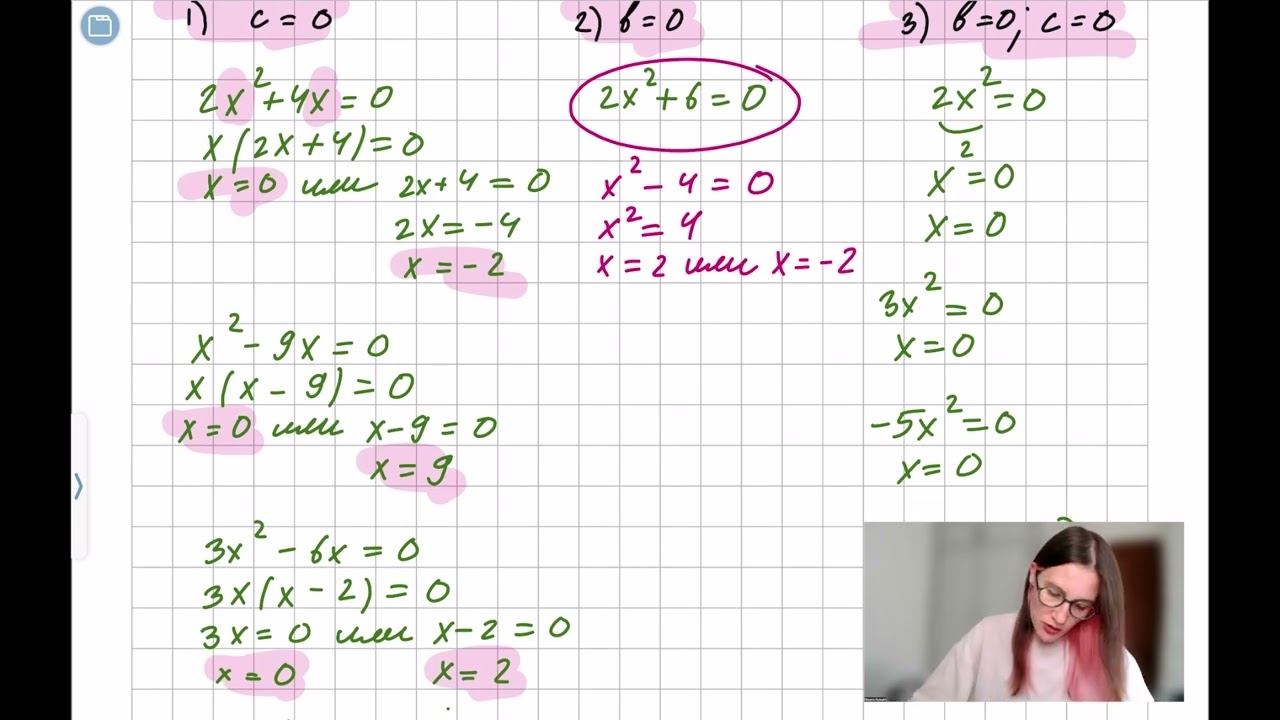 1) c = 0
2x² + 4x = 0
x(2x + 4) = 0
x = 0 или 2x + 4 = 0
2x = -4
x = -2
x² - 9x = 0
x(x - 9) = 0
x = 0 или x - 9 = 0
x = 9
3x² - 6x = 0
3x(x - 2) = 0
3x = 0 или x - 2 = 0
x = 0 x = 2
2) в = 0
2x² + 6 = 0
x² - 4 = 0
x² = 4
x = 2 или x = -2
3) в = 0; c = 0
2x² = 0
x² = 0
x = 0
3x² = 0
x = 0
-5x² = 0
x = 0